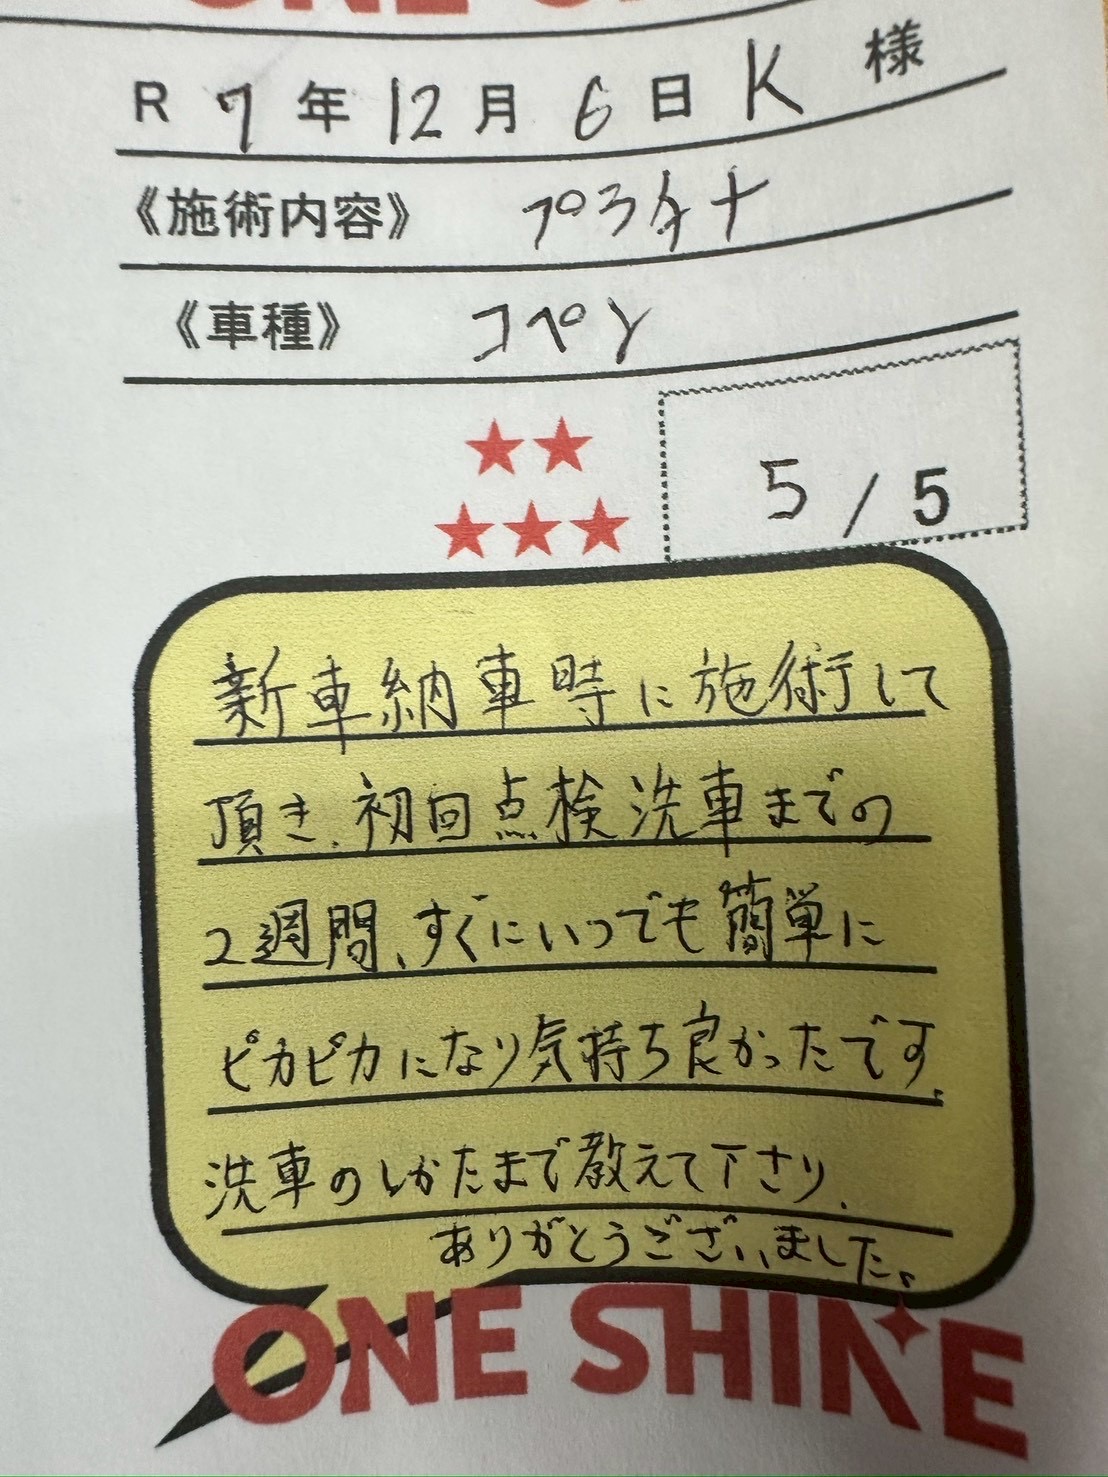 R 7年12月6日 K 様
《施術内容》 プラタナ
《車種》 コペン
5/5
新車納車時に施術して
頂き、初回点検洗車までの
2週間、すぐにいつでも簡単に
ピカピカになり気持ち良かったです。
洗車のしかたまで教えて下さり、
ありがとうございました。
ONE SHINE